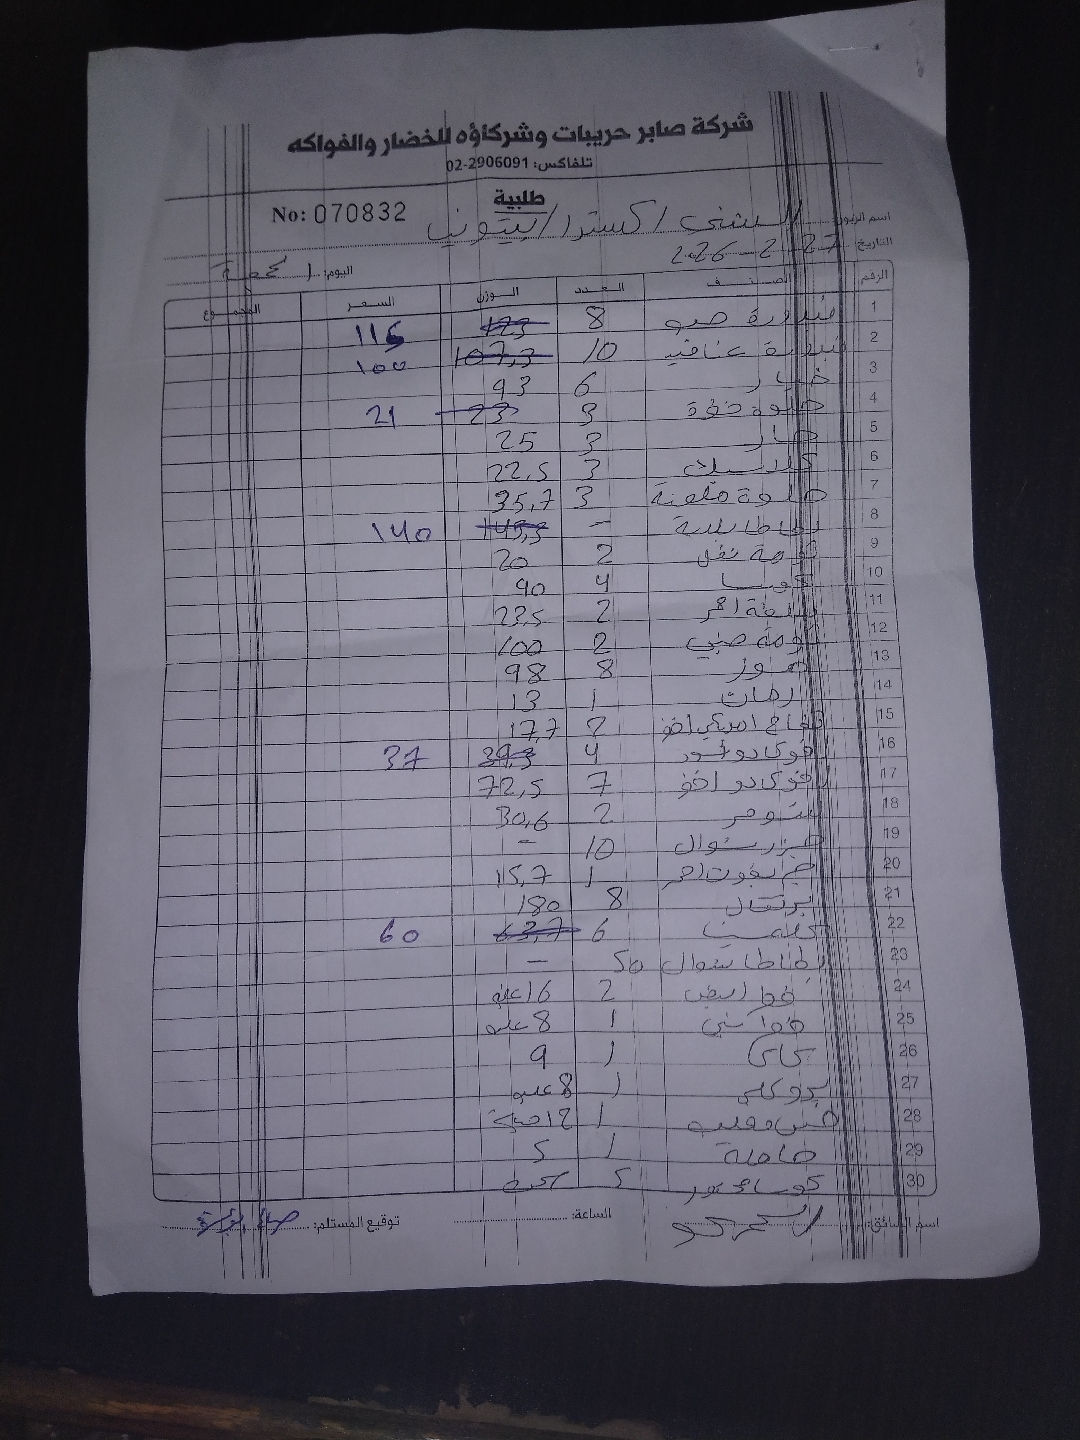 شركة صابر حريبات وشركاؤه للخضار والفواكه
تلفاكس: 02-2906091
طلبية
No: 070832
اسم الزبون: اكسترا / بيتونيا
التاريخ: 27-2-2026
اليوم: الجمعة
الرقم الصنف العدد الوزن السعر المجموع
1 بندورة 8 123 116
2 بندورة عناقيد 10 107,3 100
3 خيار 6 93
4 حلوة 3 23 21
5 حار 3 25
6 كلاسيك 3 22,5
7 حلوة ملونة 3 35,7
8 بطاطا - 140
9 ثومة 2 20
10 كوسا 4 90
11 احمر 2 23,5
12 ثومة صيني 2 100
13 موز 8 98
14 1 13
15 تفاح امريكي اخضر 2 17,7
16 4 39,3 37
17 7 72,5
18 بوملي 2 30,6
19 جزر شوال 10 -
20 جريفوت احمر 1 15,7
21 برتقال 8 180
22 كلمنتينا 6 63,7 60
23 بطاطا شوال 50 -
24 ابيض 2 16 علبة
25 1 8 علبة
26 كاكا 1 9
27 بروكلي 1 8 علبة
28 خس 1 12 حبة
29 1 5
30 كوسا 2
اسم السائق:
الساعة:
توقيع المستلم: